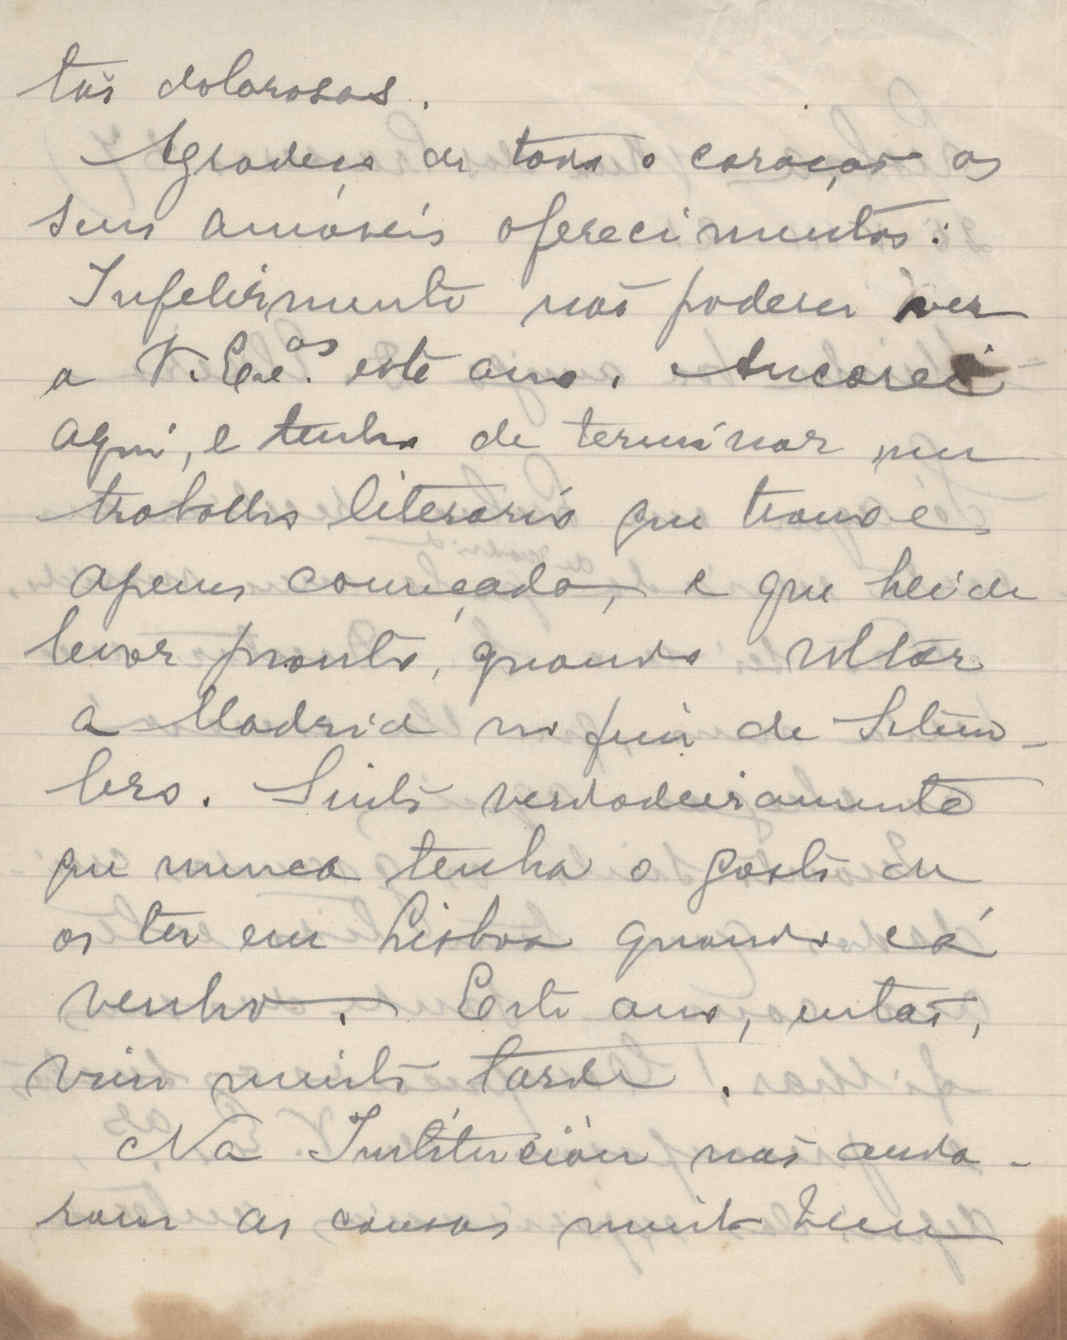 tão dolorosas.
Agradeço de todo o coração os
seus amáveis oferecimentos.
Infelizmente não poderei ver
a V. Ex.as este ano. Ancorei
aqui, e tenho de terminar um
trabalho literario que trouxe
apenas começado, e que hei de
levar pronto, quando voltar
a Madrid no fim de Setem-
bro. Sinto verdadeiramente
que nunca tenha o gosto de
os ter em Lisboa quando cá
venho. Este ano, então,
vim muito tarde.
Na Institución não anda-
ram as cousas muito bem